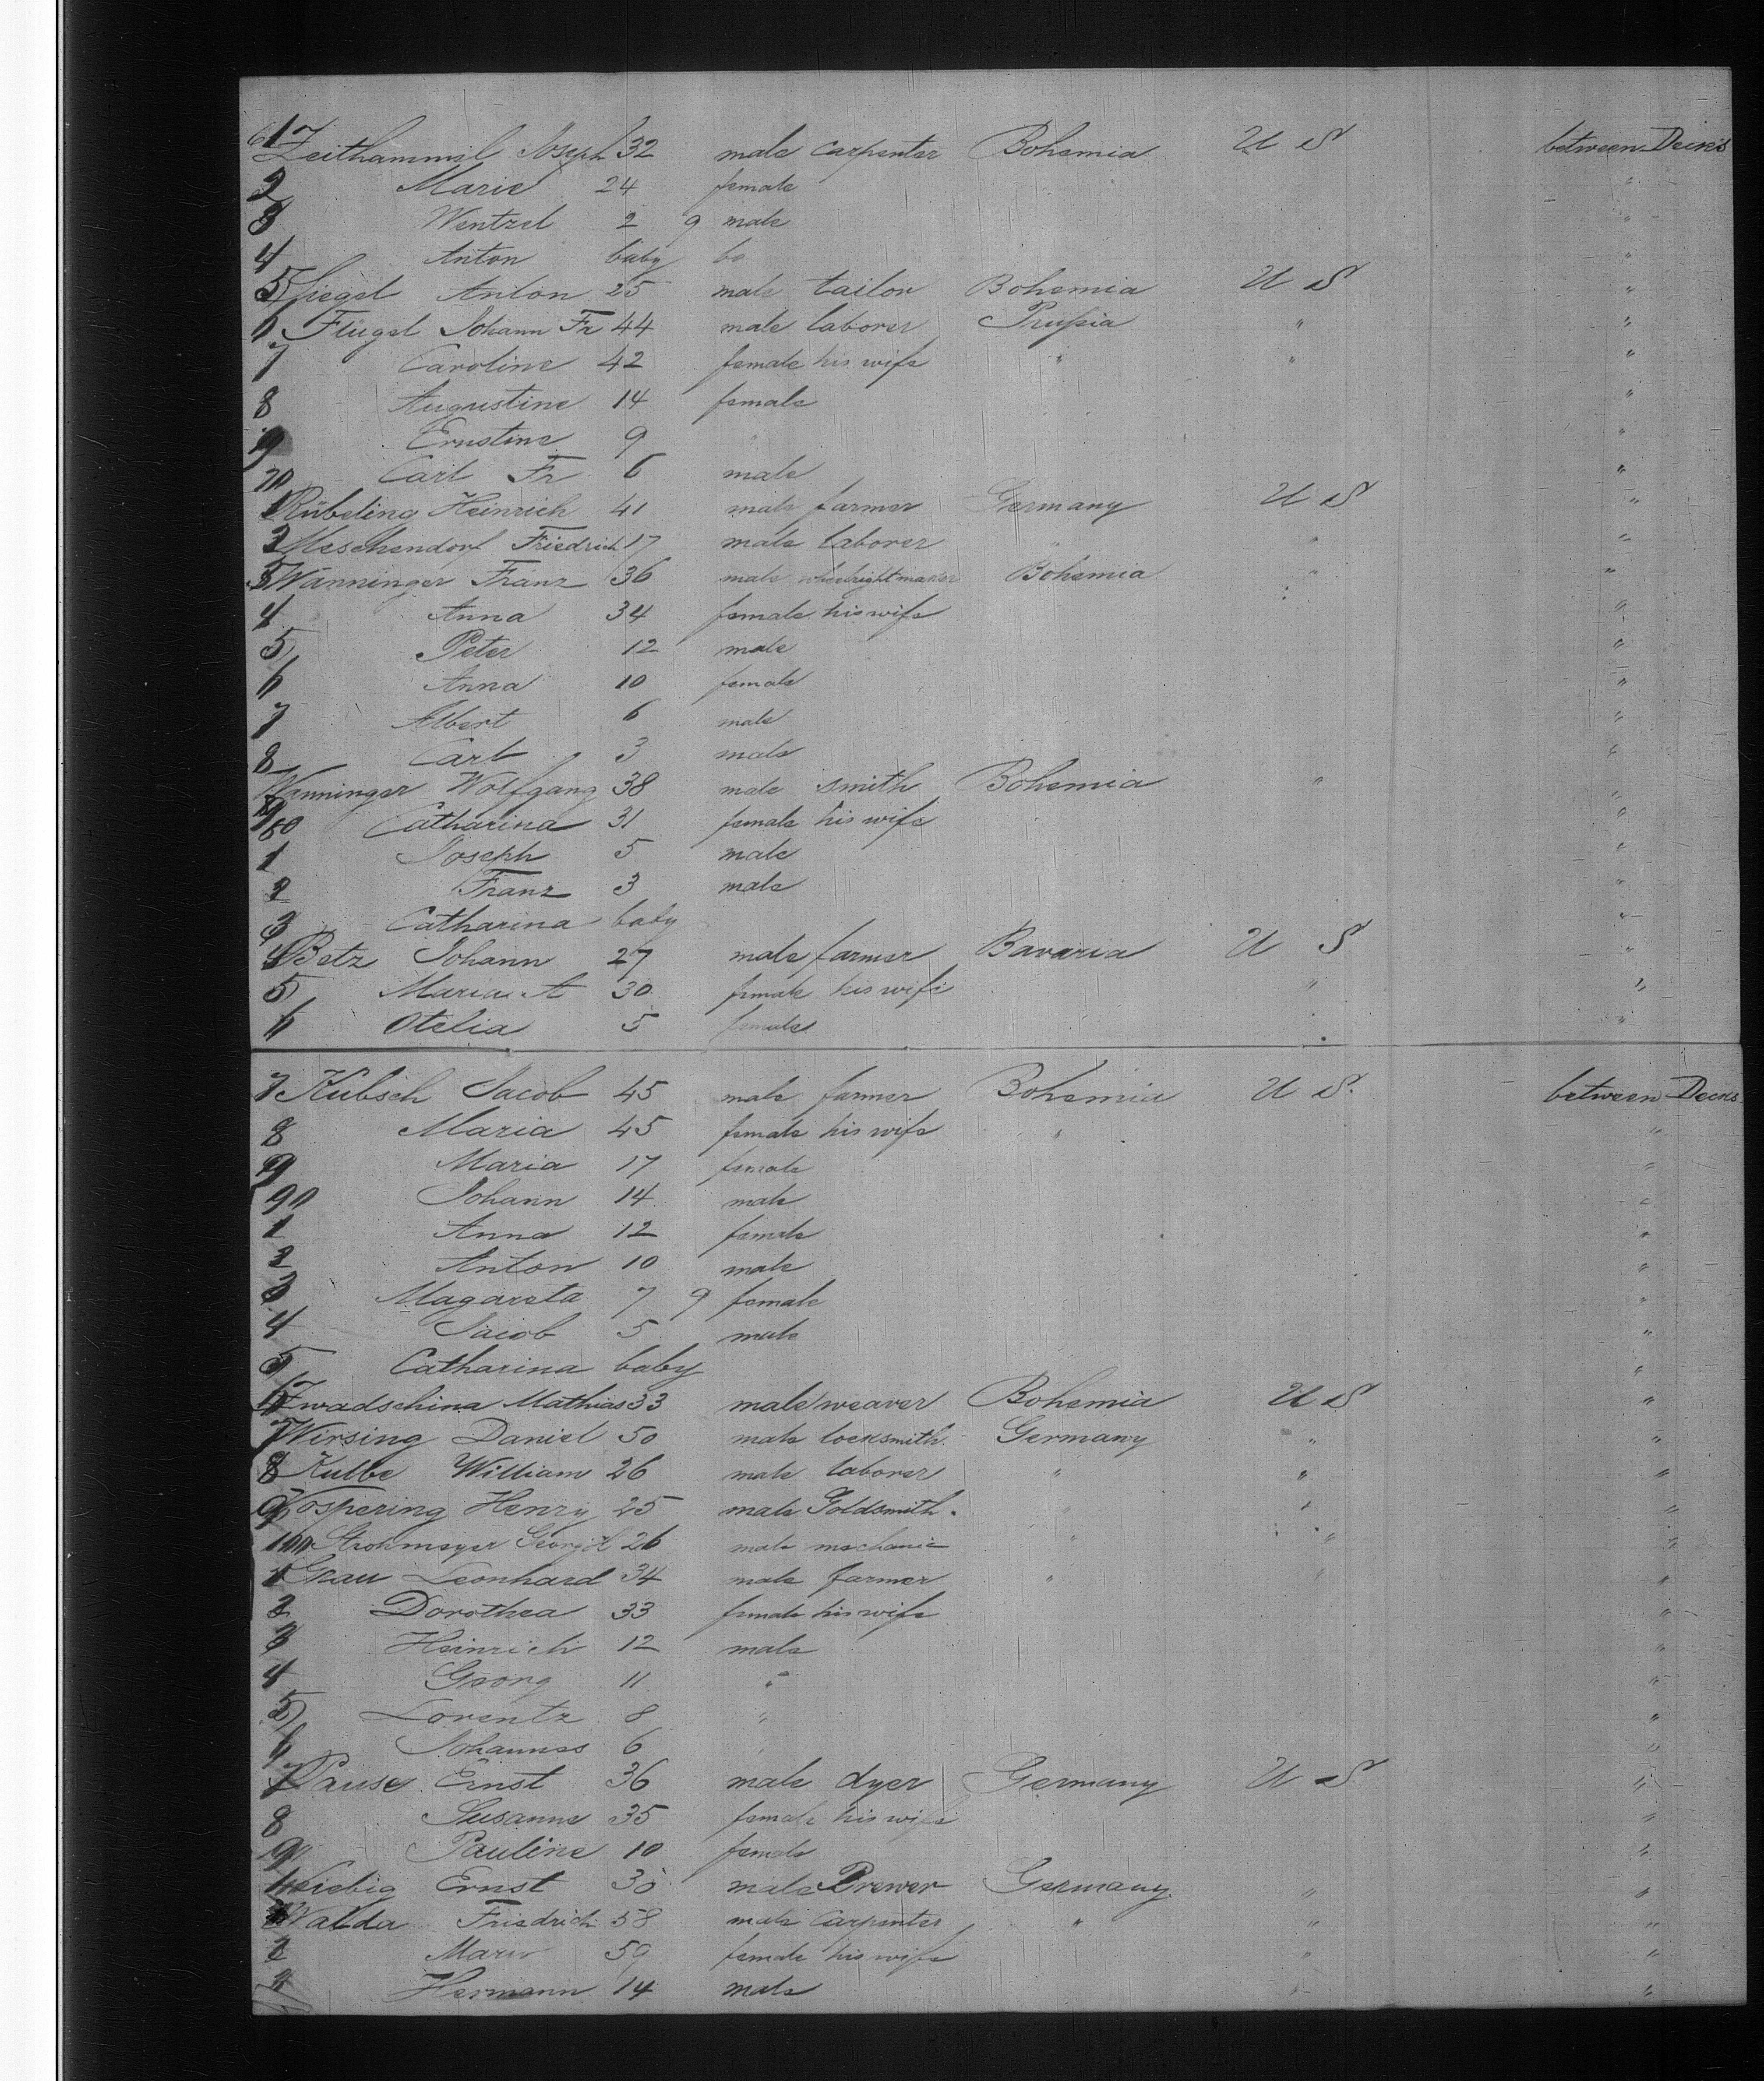 61 Zeithammel Joseph 32 male carpenter Bohemia U S between Decks
2 Marie 24 female "
3 Wentzel 2 9 male "
4 Anton baby bo "
5 Anton 25 male tailor Bohemia U S "
6 Flügel Johann Fr 44 male laborer Prussia " "
7 Caroline 42 female his wife " " "
8 Augustine 14 female "
9 Ernstine 9 " "
70 Carl Fr 6 male "
1 Rübeling Heinrich 41 male farmer Germany U S "
2 Meschendorf Friedrich 17 male laborer " " "
3 Wanninger Franz 36 male wheelrightmaker Bohemia " "
4 Anna 34 female his wife "
5 Peter 12 male "
6 Anna 10 female "
7 Albert 6 male "
8 Carl 3 male "
9 Wanninger Wolfgang 38 male smith Bohemia " "
80 Catharina 31 female his wife "
1 Joseph 5 male "
2 Franz 3 male "
3 Catharina baby "
4 Betz Johann 27 male farmer Bavaria U S "
5 Maria A 30 female his wife " "
6 Otelia 5 female "
7 Kubsch Jacob 45 male farmer Bohemia U S. between Decks
8 Maria 45 female his wife " "
9 Maria 17 female "
90 Johann 14 male "
1 Anna 12 female "
2 Anton 10 male "
3 Magareta 7 9 female "
4 Jacob 5 male "
5 Catharina baby "
6 Zwadschina Mathias 33 male weaver Bohemia U S "
7 Wirsing Daniel 50 male locksmith Germany " "
8 Kulbe William 26 male laborer " " "
9 Vospering Henry 25 male Goldsmith " " "
100 Strohmeyer Georg 26 male mechanic " " "
1 Grau Leonhard 34 male farmer " " "
2 Dorothea 33 female his wife "
3 Heinrich 12 male "
4 Georg 11 " "
5 Lorentz 8 " "
6 Johannes 6 "
7 Pause Ernst 36 male dyer Germany U S "
8 Susanne 35 female his wife "
9 Pauline 10 female "
Liebig Ernst 30 male Brewer Germany " "
Walda Friedrich 58 male carpenter " " "
2 Marie 59 female his wife " "
3 Hermann 14 male " "